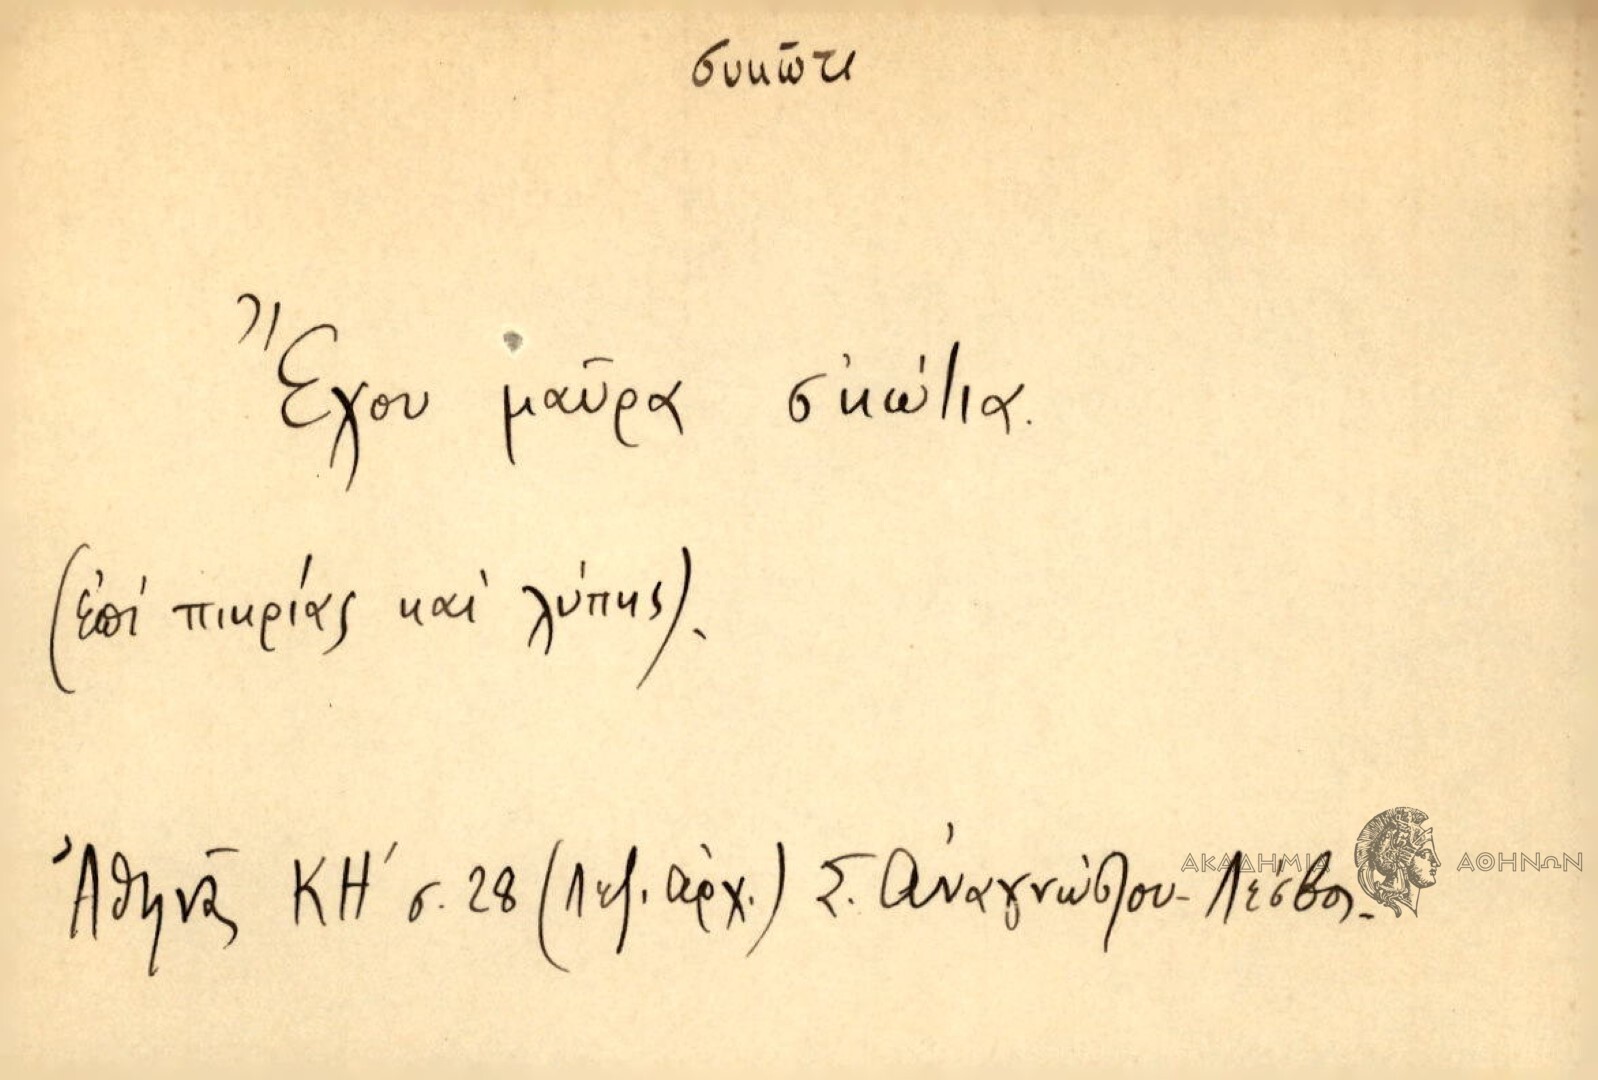 συκῶτι
Ἔχου μαῦρα σ'κώτια.
(ἐπί πικρίας καὶ λύπης).
Ἀθηνᾶ ΚΗ' σ. 28 (Λεξ. ἀρχ.) Σ. Ἀναγνώστου - Λέσβος.
ΑΚΑΔΗΜΙΑ ΑΘΗΝΩΝ